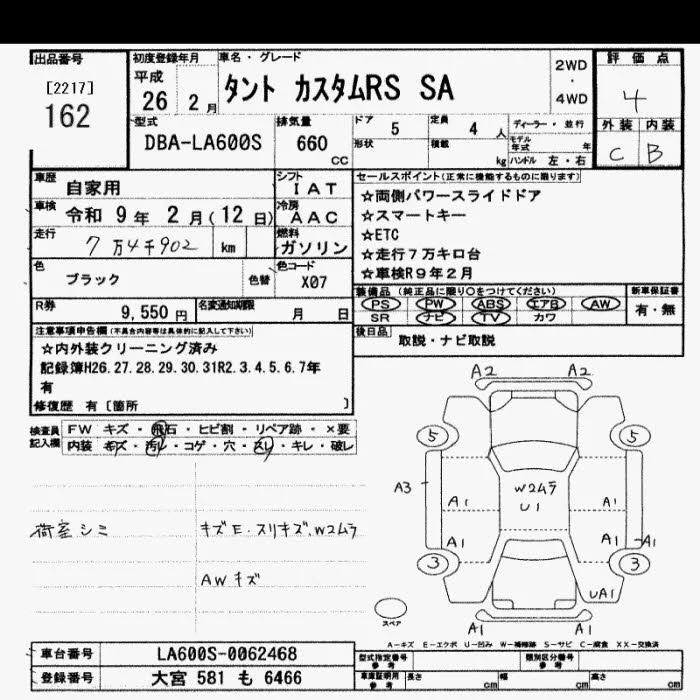 出品番号
[2217]
162
初度登録年月
平成
26 2 月
車名・グレード
タント カスタムRS SA
2WD
・
4WD
評価点
4
外装 内装
C B
型式
DBA-LA600S
排気量
660
CC
ドア 5
定員 4 人
形状
積載
kg
ディーラー・並行
モデル
年式
年
ハンドル 左・右
車歴
自家用
シフト
IAT
車検
令和 9 年 2 月(12 日)
冷房
AAC
走行
7万4千902
km
燃料
ガソリン
色
ブラック
色替
色コード
X07
R券
9,550 円
名変通知期限
月 日
セールスポイント(正常に機能するものに限ります)
☆両側パワースライドドア
☆スマートキー
☆ETC
☆走行7万キロ台
☆車検R9年2月
装備品 (純正品に限り○をつけてください)
PS PW ABS エアB AW
SR ナビ TV カワ
新車保証書
有・無
後日品
取説・ナビ取説
注意事項申告欄(不具合内容等は具体的に記入して下さい)
☆内外装クリーニング済み
記録簿H26.27.28.29.30.31R2.3.4.5.6.7年
有
修復歴 有〔箇所 〕
検査員
記入欄
FW キズ・飛石・ヒビ割・リペア跡・×要
内装 キズ・汚レ・コゲ・穴・スレ・キレ・破レ
荷室シミ
キズE・スリキズ、W2ムラ
AWキズ
A2 A2
5 5
A3
W2ムラ
U1
A1 A1
A1 A1 A1
3 3
UA1
A1 A1
スペア
A-キズ E-エクボ U-凹み W-補修跡 S-サビ C-腐食 XX-交換済
車台番号
LA600S-0062468
登録番号
大宮 581 も 6466
型式指定番号
参考
類別区分番号
参考
車庫証明用
参考
長さ
cm
幅
cm
高さ
cm